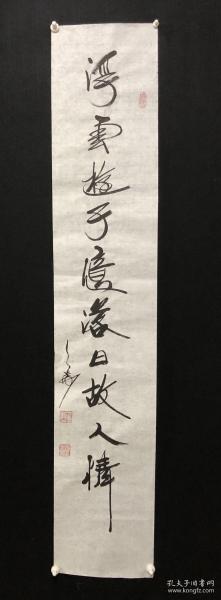 浮雲遊子意落日故人情
孔夫子旧书网
www.kongfz.com